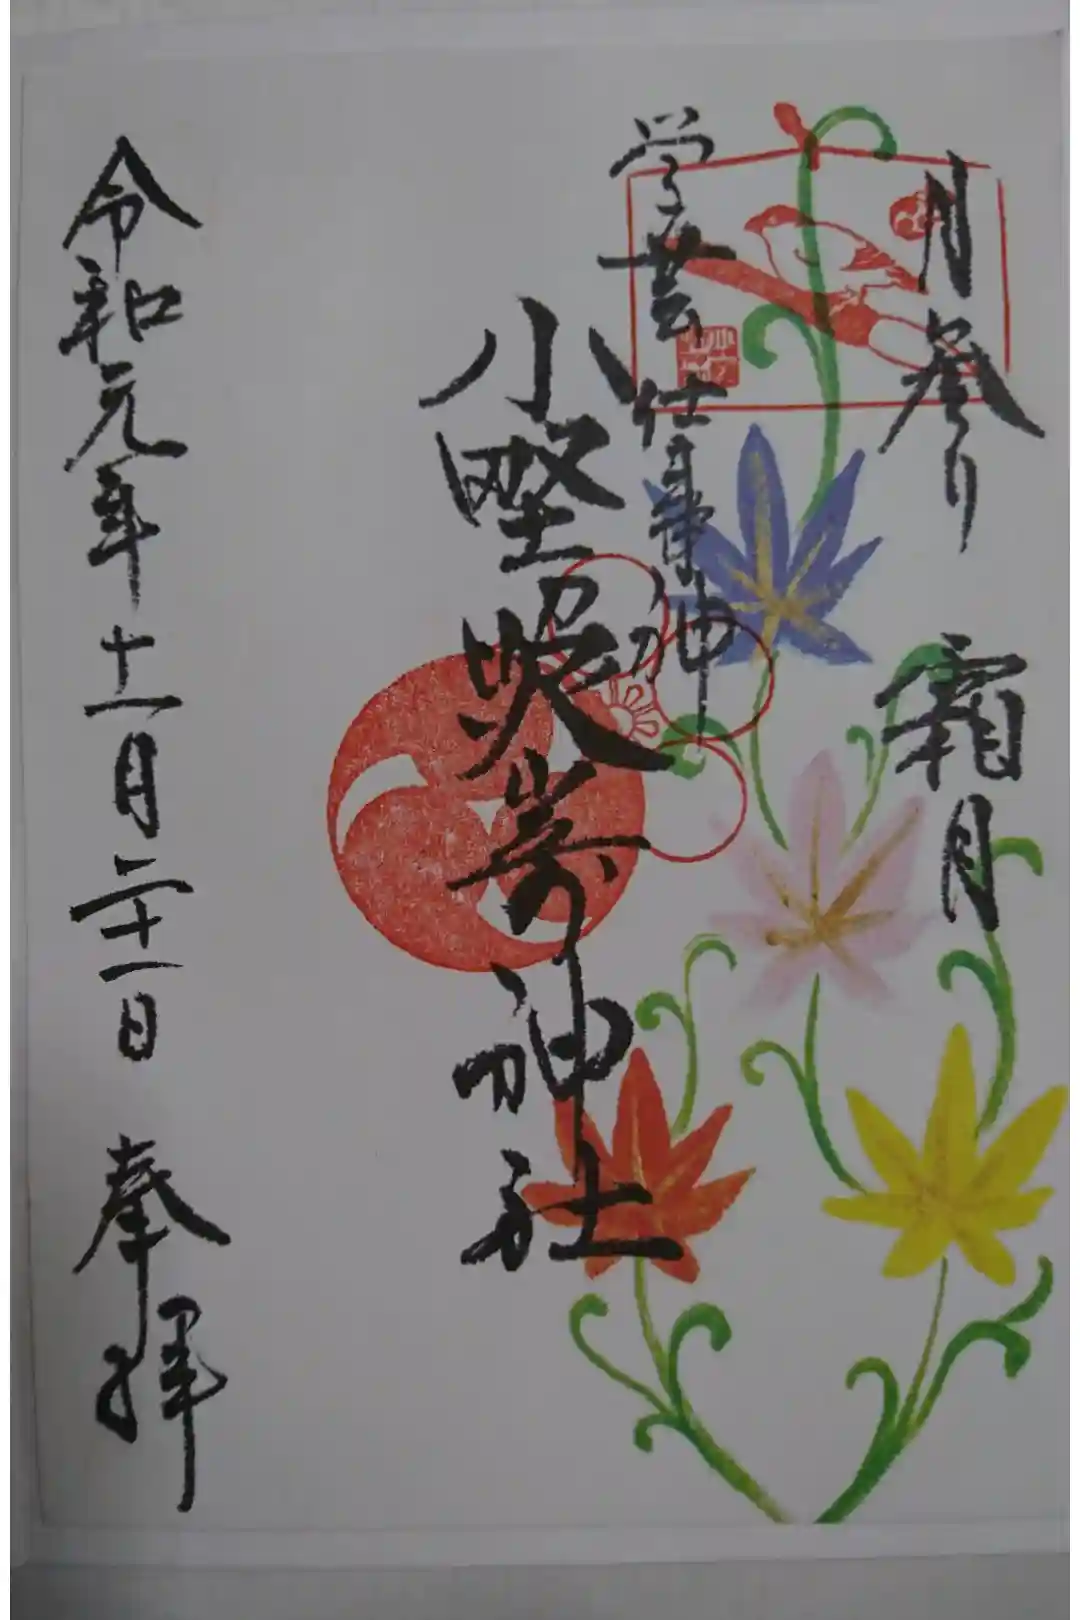 月参り 霜月
学芸 仕事神
小野照崎神社
令和元年十一月二十一日 奉拝